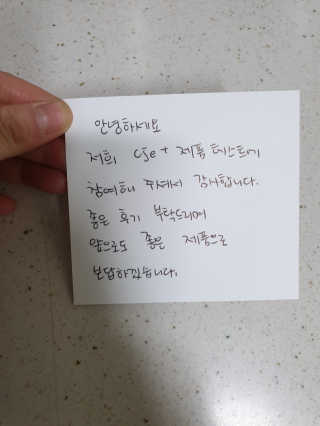 안녕하세요
저희 cset 제품 테스트에
참여해 주셔서 감사합니다.
좋은 후기 부탁드리며
앞으로도 좋은 제품으로
보답하겠습니다.